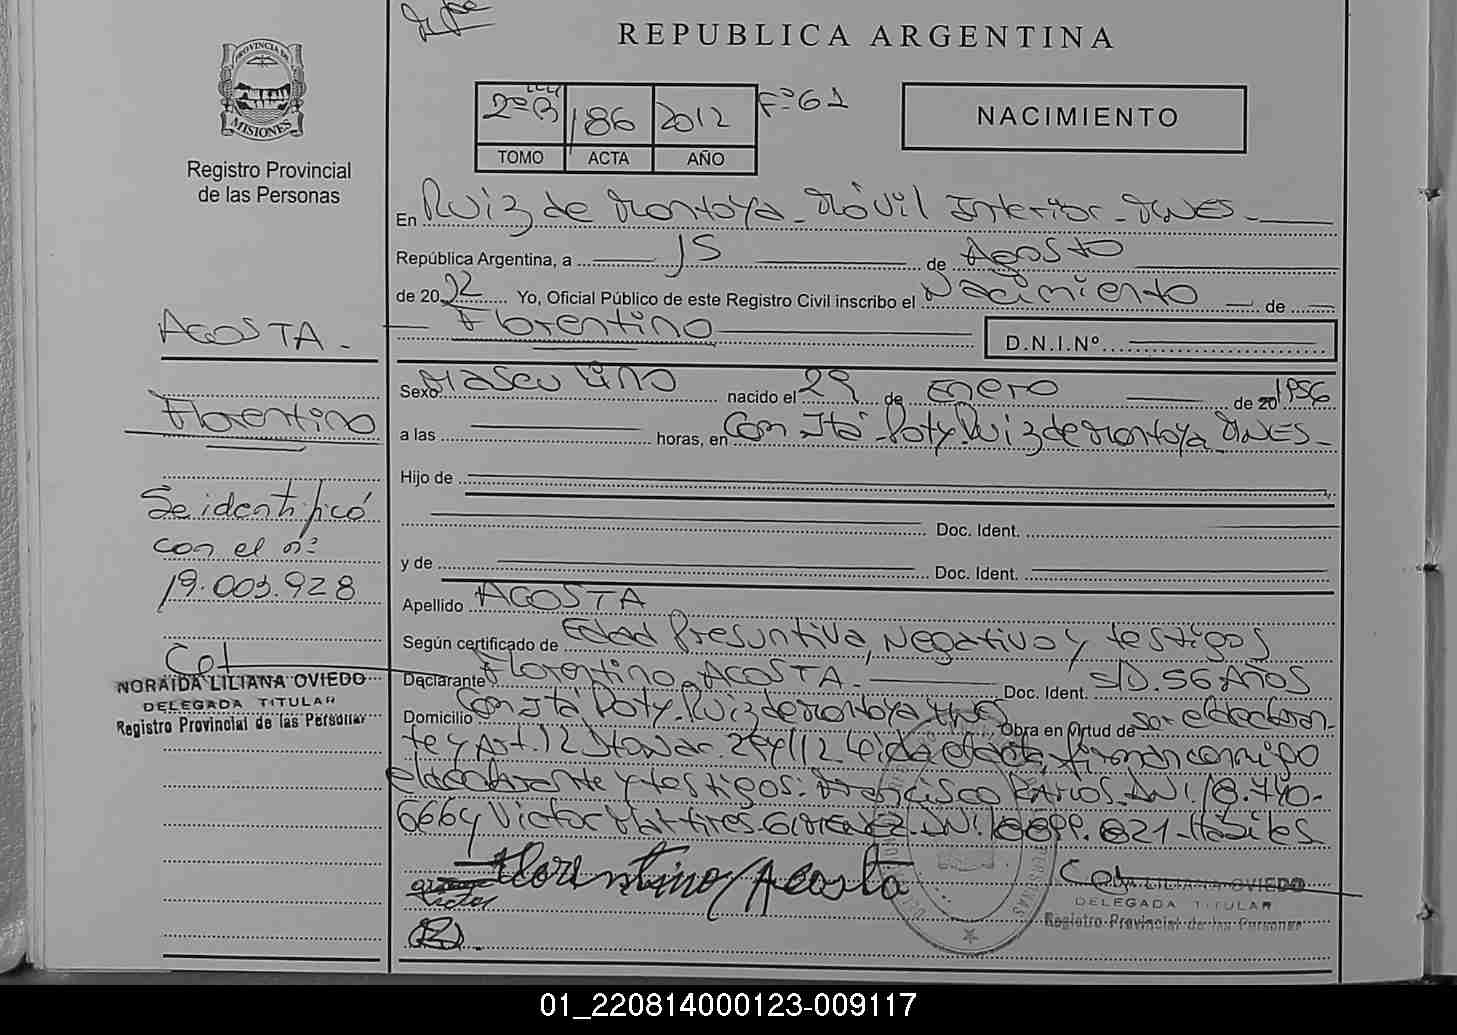 REPUBLICA ARGENTINA
PROVINCIA DE
MISIONES
Registro Provincial
de las Personas
2º B 186 2012 Fº 61
TOMO ACTA AÑO
NACIMIENTO
En Ruiz de Montoya - Móvil Interior - MNES -
República Argentina, a 15 de Agosto
de 2012 Yo, Oficial Público de este Registro Civil inscribo el Nacimiento de
Florentino
D.N.I.Nº
ACOSTA -
Florentino
Se identificó
con el nº
19.003.928
NORAIDA LILIANA OVIEDO
DELEGADA TITULAR
Registro Provincial de las Personas
Sexo Masculino nacido el 29 de Enero de 20 1956
a las horas, en Com Itá Poty. Ruiz de Montoya MNES -
Hijo de
Doc. Ident.
y de Doc. Ident.
Apellido ACOSTA
Según certificado de Edad Presuntiva, Negativo y testigos
Declarante Florentino ACOSTA. Doc. Ident. S/D. 56 AÑOS
Domicilio Com Itá Poty. Ruiz de Montoya MNES Obra en virtud de ser el declaran-
te y Art. 12 Leida el acta, firman conmigo
el declarante y testigos: Francisco DNI. 18.740.
666 y Victor DNI. - Hábiles
Florentino Acosta
Victor
LILIANA OVIEDO
DELEGADA TITULAR
Registro Provincial de las Personas
01_220814000123-009117